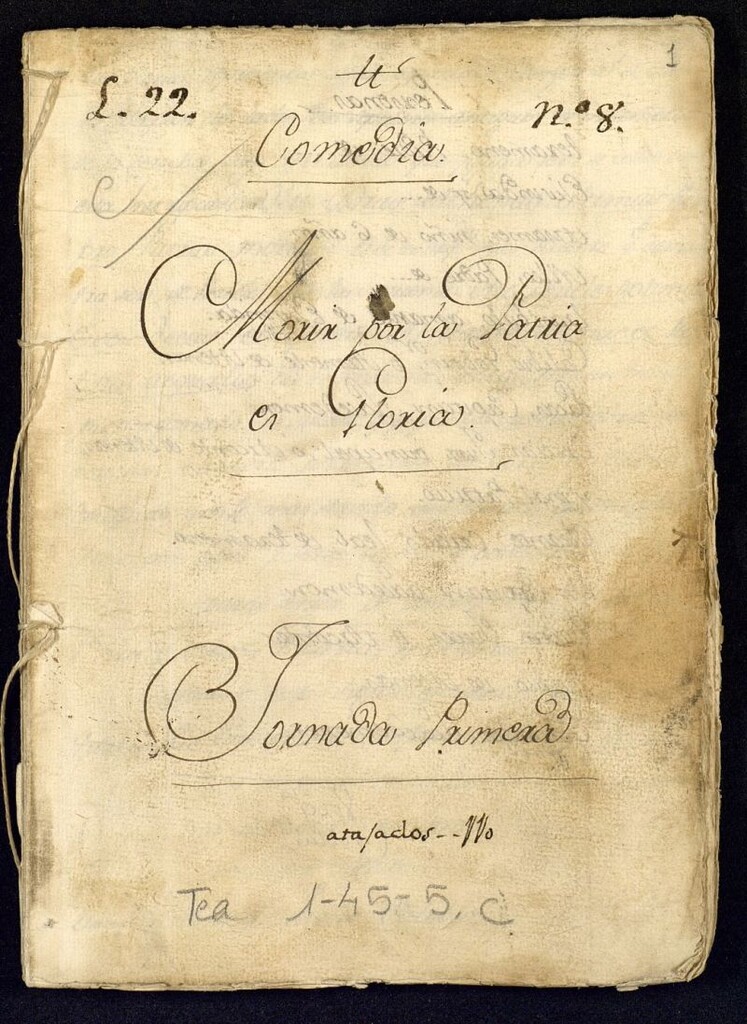 1
L. 22.
n.º 8.
Comedia.
Morir por la Patria
es Gloria.
Jornada Primera
atajados--110
Tea 1-45-5, C